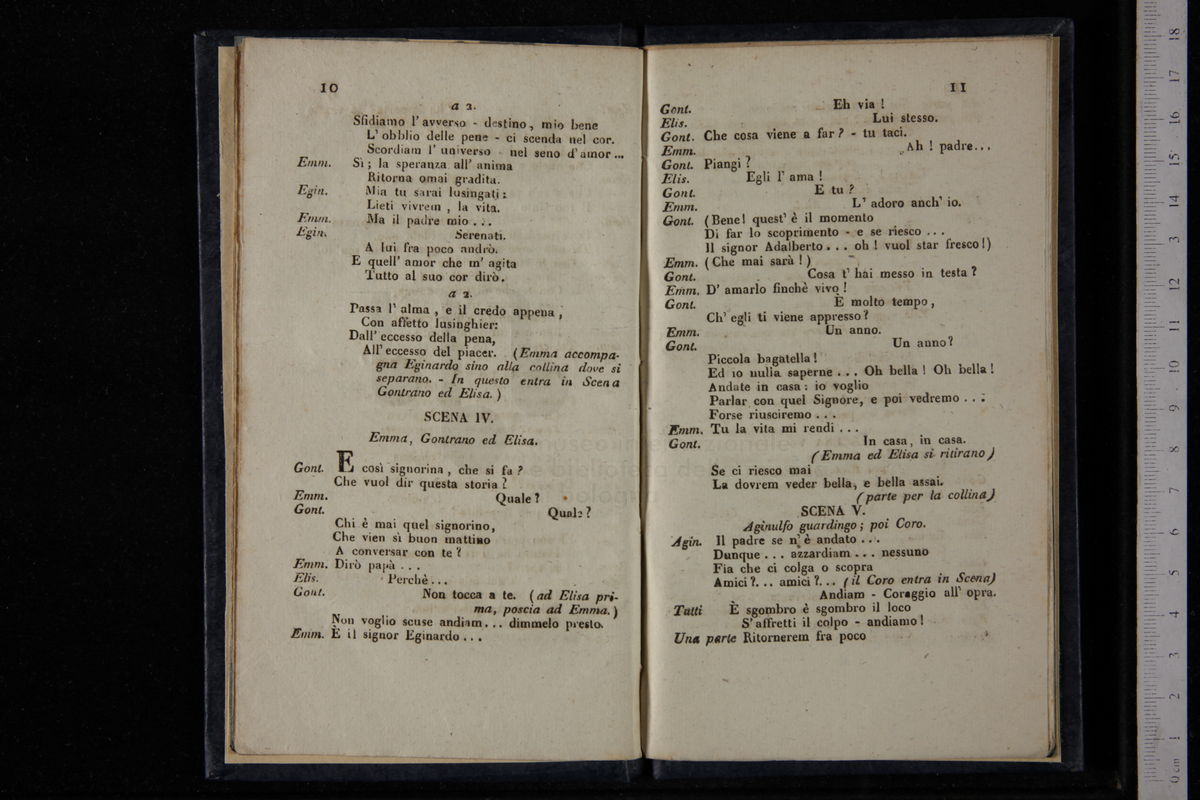 10
a 2.
Sfidiamo l' avverso - destino, mio bene
L' obblio delle pene - ci scenda nel cor.
Scordiam l' universo - nel seno d' amor...
Emm. Sì; la speranza all' anima
Ritorna omai gradita.
Egin. Mia tu sarai lusingati:
Lieti vivrem, la vita.
Emm. Ma il padre mio...
Egin. Serenati.
A lui fra poco andrò.
E quell' amor che m' agita
Tutto al suo cor dirò.
a 2.
Passa l' alma, e il credo appena,
Con affetto lusinghier:
Dall' eccesso della pena,
All' eccesso del piacer. (Emma accompa-
gna Eginardo sino alla collina dove si
separano. - In questo entra in Scena
Gontrano ed Elisa.)
SCENA IV.
Emma, Gontrano ed Elisa.
Gont. E così signorina, che si fa?
Che vuol dir questa storia?
Emm. Quale?
Gont. Quale?
Chi è mai quel signorino,
Che vien sì buon mattino
A conversar con te?
Emm. Dirò papà...
Elis. Perchè...
Gont. Non tocca a te. (ad Elisa pri-
ma, poscia ad Emma.)
Non voglio scuse andiam... dimmelo presto.
Emm. È il signor Eginardo...
11
Gont. Eh via!
Elis. Lui stesso.
Gont. Che cosa viene a far? - tu taci.
Emm. Ah! padre...
Gont. Piangi?
Elis. Egli l' ama!
Gont. E tu?
Emm. L' adoro anch' io.
Gont. (Bene! quest' è il momento
Di far lo scoprimento - e se riesco...
Il signor Adalberto... oh! vuol star fresco!)
Emm. (Che mai sarà!)
Gont. Cosa t' hai messo in testa?
Emm. D' amarlo finchè vivo!
Gont. È molto tempo,
Ch' egli ti viene appresso?
Emm. Un anno.
Gont. Un anno?
Piccola bagatella!
Ed io nulla saperne... Oh bella! Oh bella!
Andate in casa: io voglio
Parlar con quel Signore, e poi vedremo...
Forse riusciremo...
Emm. Tu la vita mi rendi...
Gont. In casa, in casa.
(Emma ed Elisa si ritirano)
Se ci riesco mai
La dovrem veder bella, e bella assai.
(parte per la collina)
SCENA V.
Aginulfo guardingo; poi Coro.
Agin. Il padre se n' è andato...
Dunque... azzardiam... nessuno
Fia che ci colga o scopra
Amici?... amici?... (il Coro entra in Scena)
Andiam - Coraggio all' opra.
Tutti È sgombro è sgombro il loco
S' affretti il colpo - andiamo!
Una parte Ritornerem fra poco
0 cm 1 2 3 4 5 6 7 8 9 10 11 12 13 14 15 16 17 18